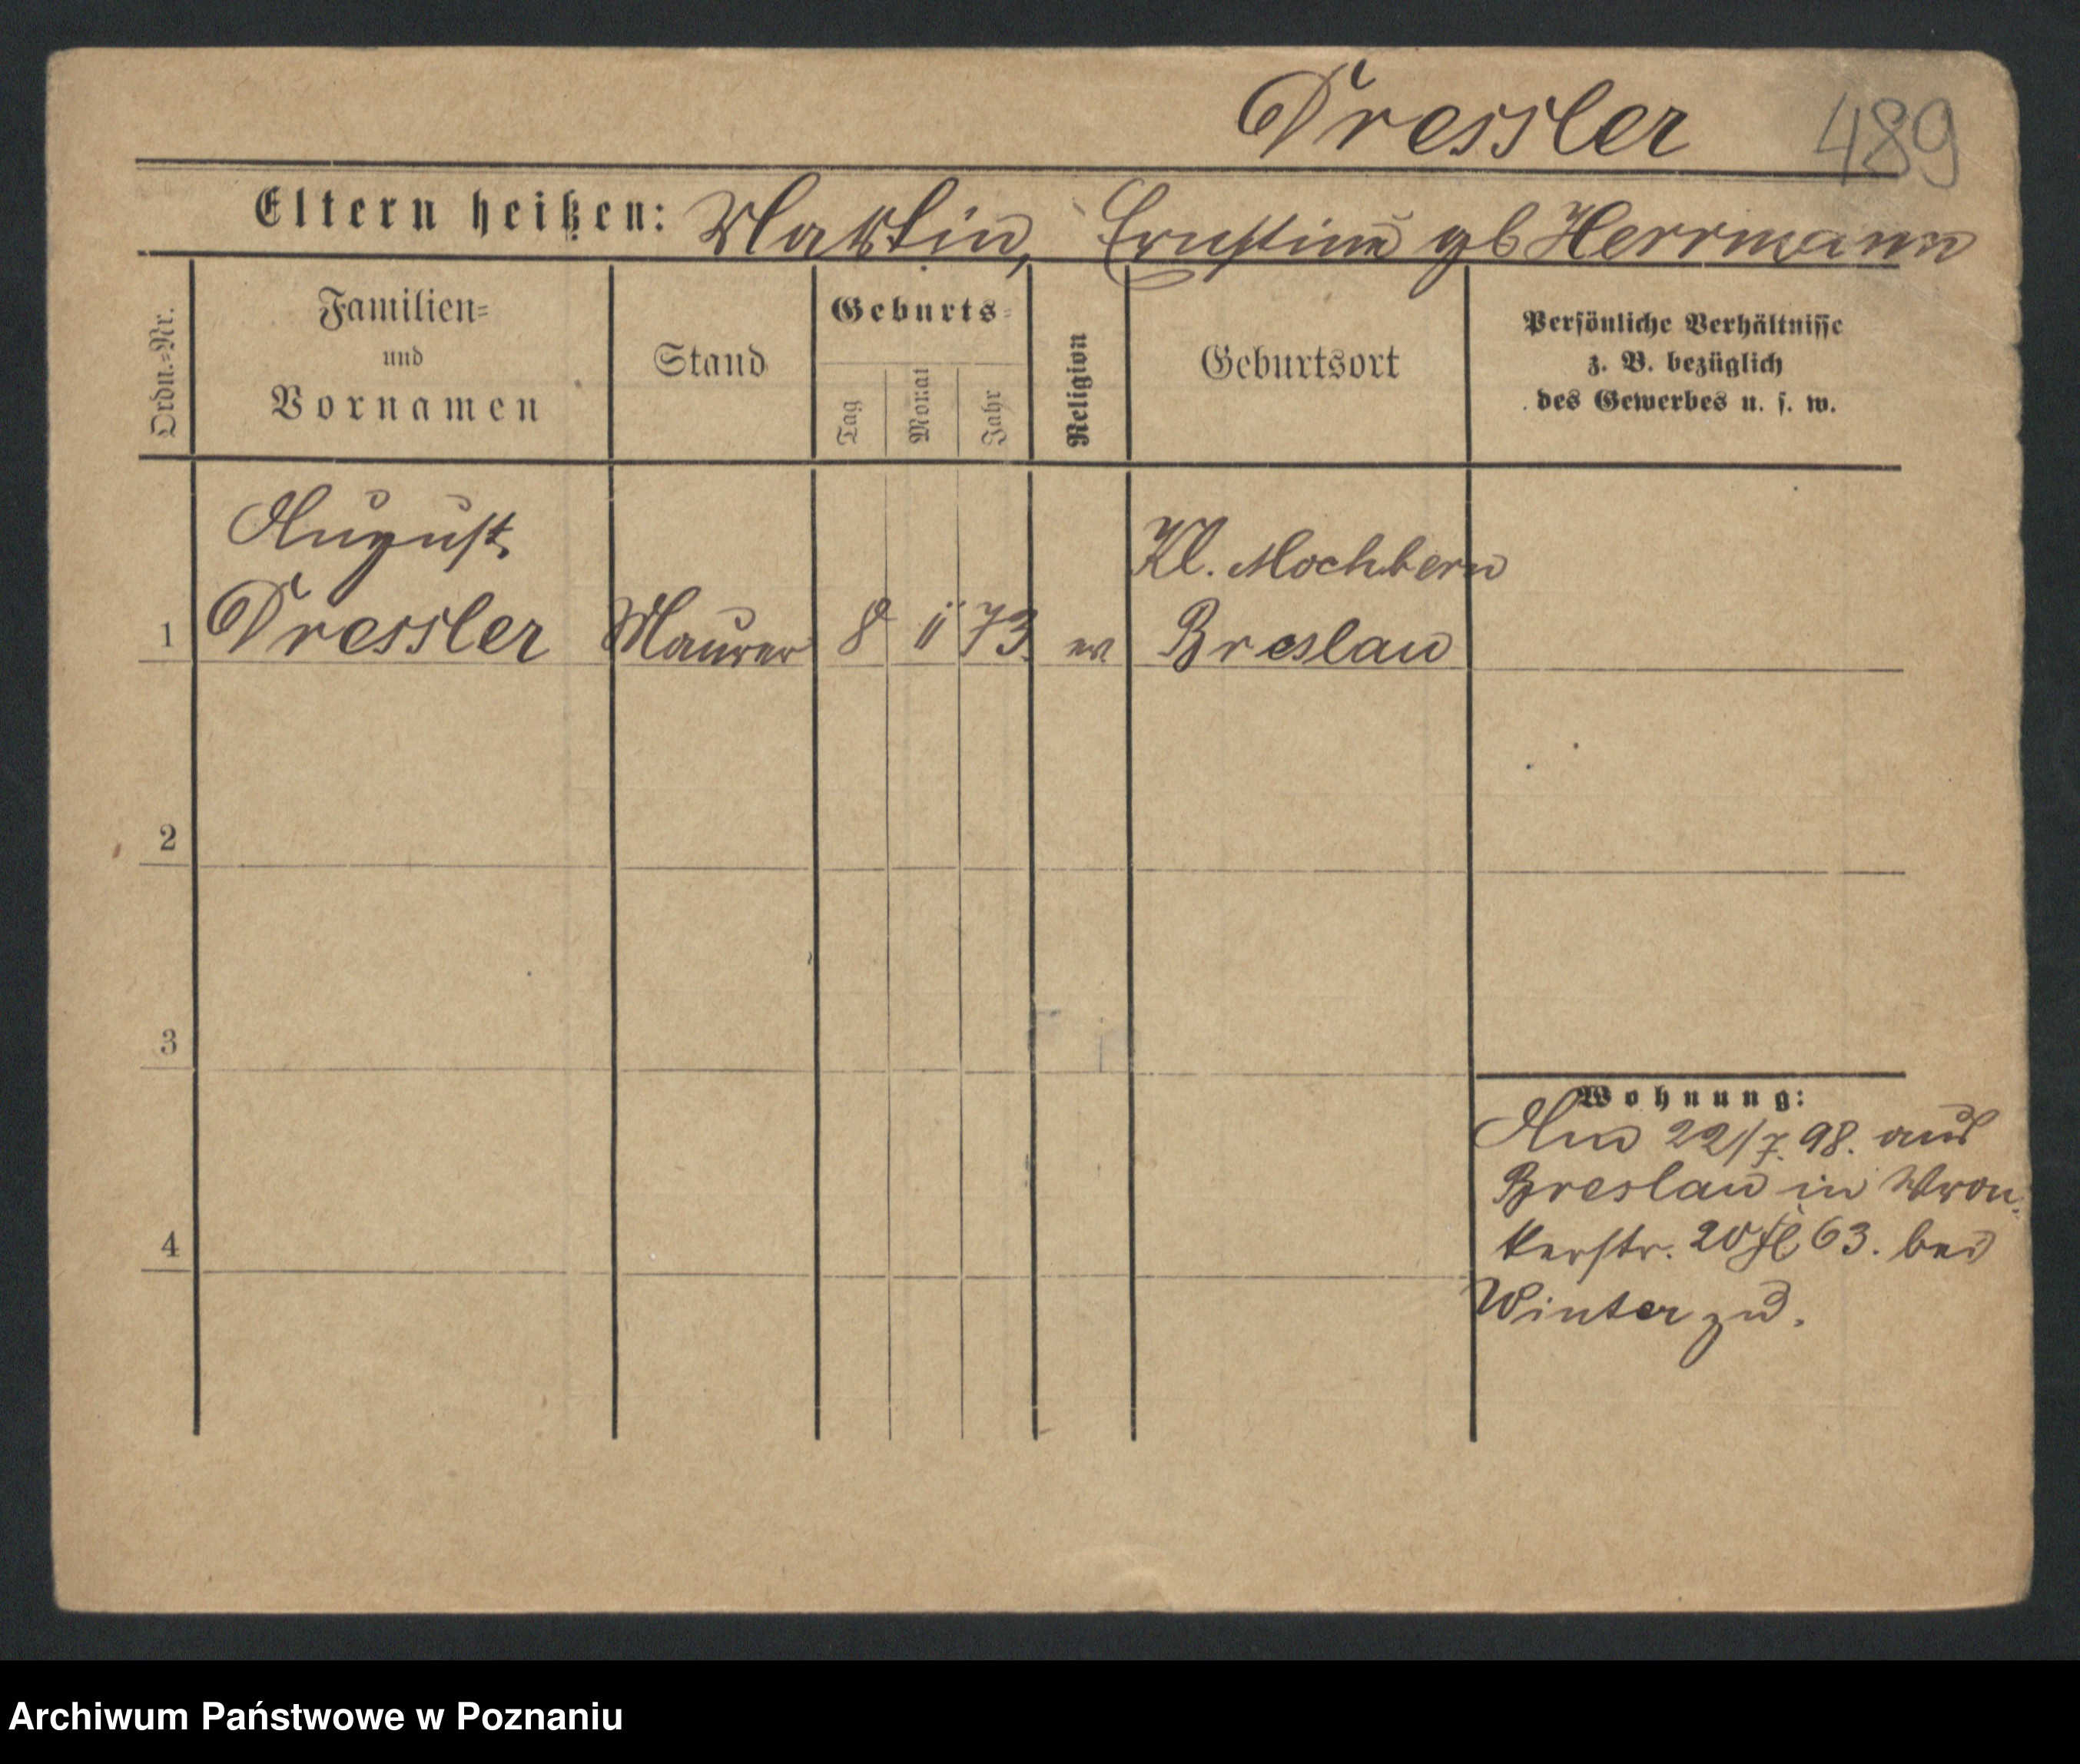 Dressler 489
Eltern heißen: Martin, Ernstine gb Herrmann
Ordn.=Nr.
Familien=
und
Vornamen
Stand
Geburts=
Tag
Monat
Jahr
Religion
Geburtsort
Persönliche Verhältnisse
z. B. bezüglich
des Gewerbes u. s. w.
August
Kl. Mochbern
1 Dressler Maurer 8 ii 73. ev Breslau
2
3
4
Wohnung:
Am 22/7. 98. aus
Breslau in Wron-
kerstr. 20 63. bei
Winter zu.
Archiwum Państwowe w Poznaniu